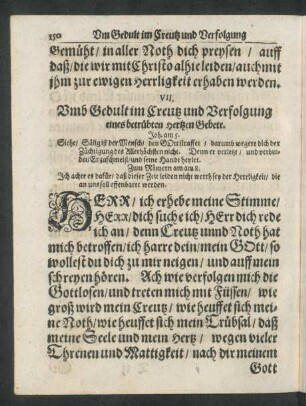 150 Vm Gedult im Creutz und Verfolgung
Gemüht / in aller Noth dich preysen / auff
daß / die wir mit Christo alhie leiden / auch mit
jhm zur ewigen Herrligkeit erhaben werden.
VII.
Vmb Gedult im Creutz und Verfolgung
eines betrübten Hertzen Gebett.
Job. am 5.
Siehe / Sälig ist der Mensch / den GOtt straffet / darumb wegere dich der
Züchtigung des Allerhöchsten nicht. Denn er verletzt / und verbin-
det / Er zuschmeist / und seine Hand heylet.
Zum Römern am am 8.
Ich achte es dafür / daß dieser Zeit leiden nicht werth sey der Herrligkeit / die
an uns soll offenbaret werden.
HERR / ich erhebe meine Stimme /
HErr / dich suche ich / HErr dich rede
ich an / denn Creutz unnd Noth hat
mich betroffen / ich harre dein / mein GOtt / so
wollest du dich zu mir neigen / und auff mein
schreyen hören. Ach wie verfolgen mich die
Gottlosen / und treten mich mit Füssen / wie
groß wird mein Creutz / wie heuffet sich mei-
ne Noth / wie heuffet sich mein Trübsal / daß
meine Seele und mein Hertz / wegen vieler
Threnen und Mattigkeit / nach dir meinem
Gott